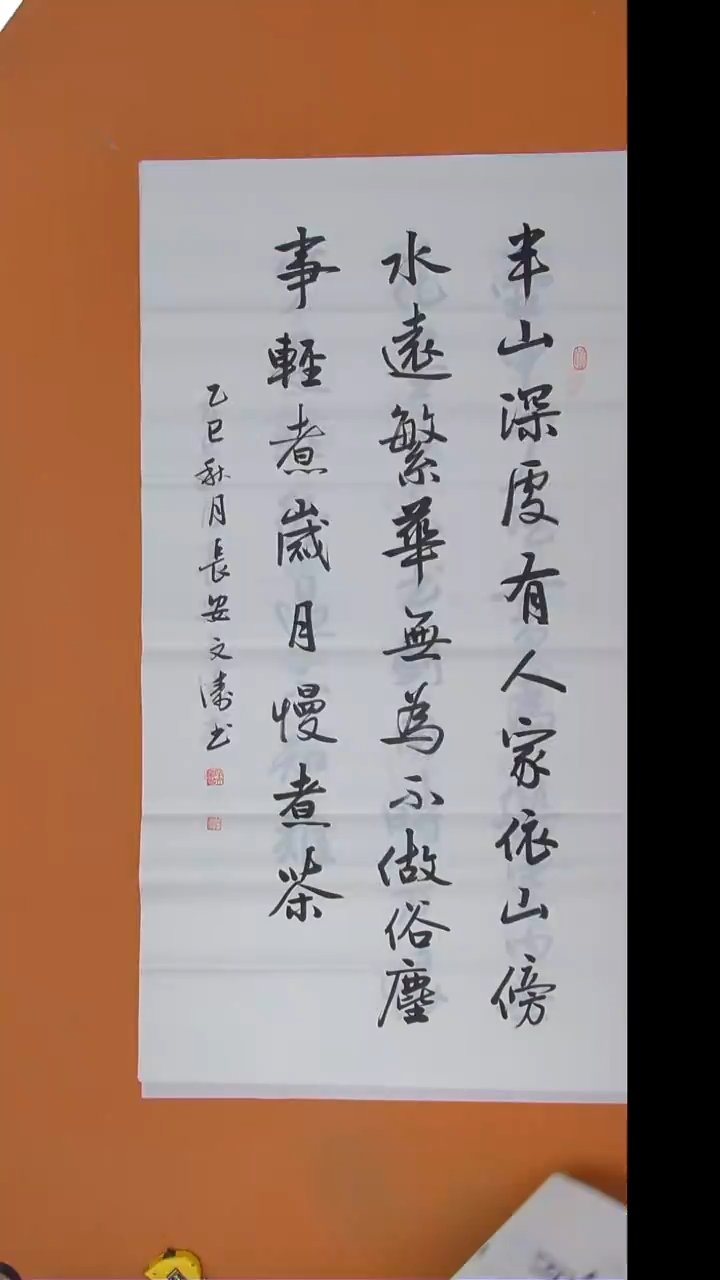 半山深處有人家依山傍
水遠繁華無為不做俗塵
事輕煮歲月慢煮茶
乙巳秋月長安文濤书